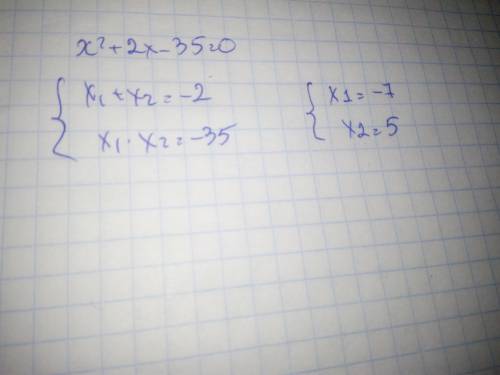 x²+2x-35=0
x₁+x₂=-2
x₁·x₂=-35
x1=-7
x2=5